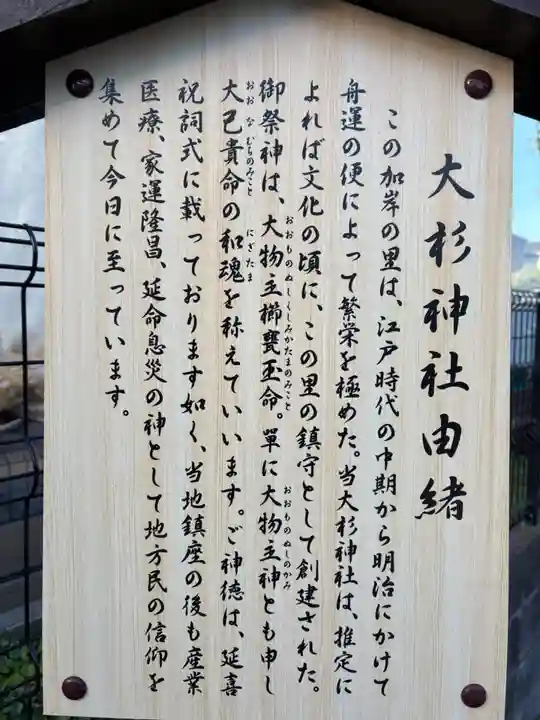 大杉神社由緒
この加岸の里は、江戸時代の中期から明治にかけて
舟運の便によって繁栄を極めた。当大杉神社は、推定に
よれば文化の頃に、この里の鎮守として創建された。
御祭神は、大物主櫛甕玉命。單に大物主神とも申し
おおものぬしくしみかたまのみこと
おおものぬしのかみ
大己貴命の和魂を称えていいます。ご神徳は、延喜
おおなむちのみこと
にぎたま
祝詞式に載っております如く、当地鎮座の後も産業
医療、家運隆昌、延命息災の神として地方民の信仰を
集めて今日に至っています。